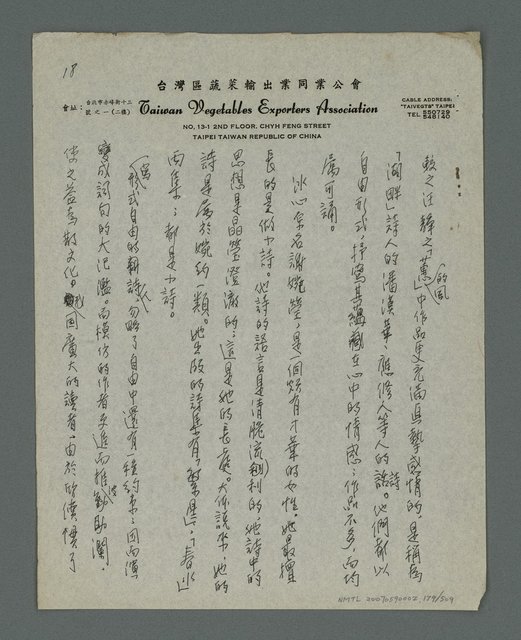 18
台灣區蔬菜輸出業同業公會
會址：台北市赤峰街十三號之一(二樓)
Taiwan Vegetables Exporters Association
CABLE ADDRESS:
"TAIVEGTS" TAIPEI
TEL 550729
548140
NO. 13-1 2ND FLOOR. CHYH FENG STREET
TAIPEI TAIWAN REPUBLIC OF CHINA
較之汪靜之「蕙的風」中作品更充滿真摯感情的，是稱為
「湖畔」詩人的潘漠華，應修人等人的詩。他們都以
自由形式，抒寫其蘊藏在心中的情感，作品不多，而均
屬可誦。
冰心原名謝婉瑩，是一個頗有才華的女性。她最擅
長的是做小詩。她詩的語言是清脆流利的，她詩中的
思想是晶瑩澄澈的，這是她的長處。大体說來，她的
詩是屬於婉約一類。她出版的詩集有「繁星」，「春水」
兩集，都是小詩。
形式自由的新詩，忽略了自由中還有一種約束，因而演
變成詞句的大氾濫。而模仿的作者更進而推波助瀾，
使之益為散文化。因廣大的讀者，由於所習慣了
NMTL 20070590002 179/509